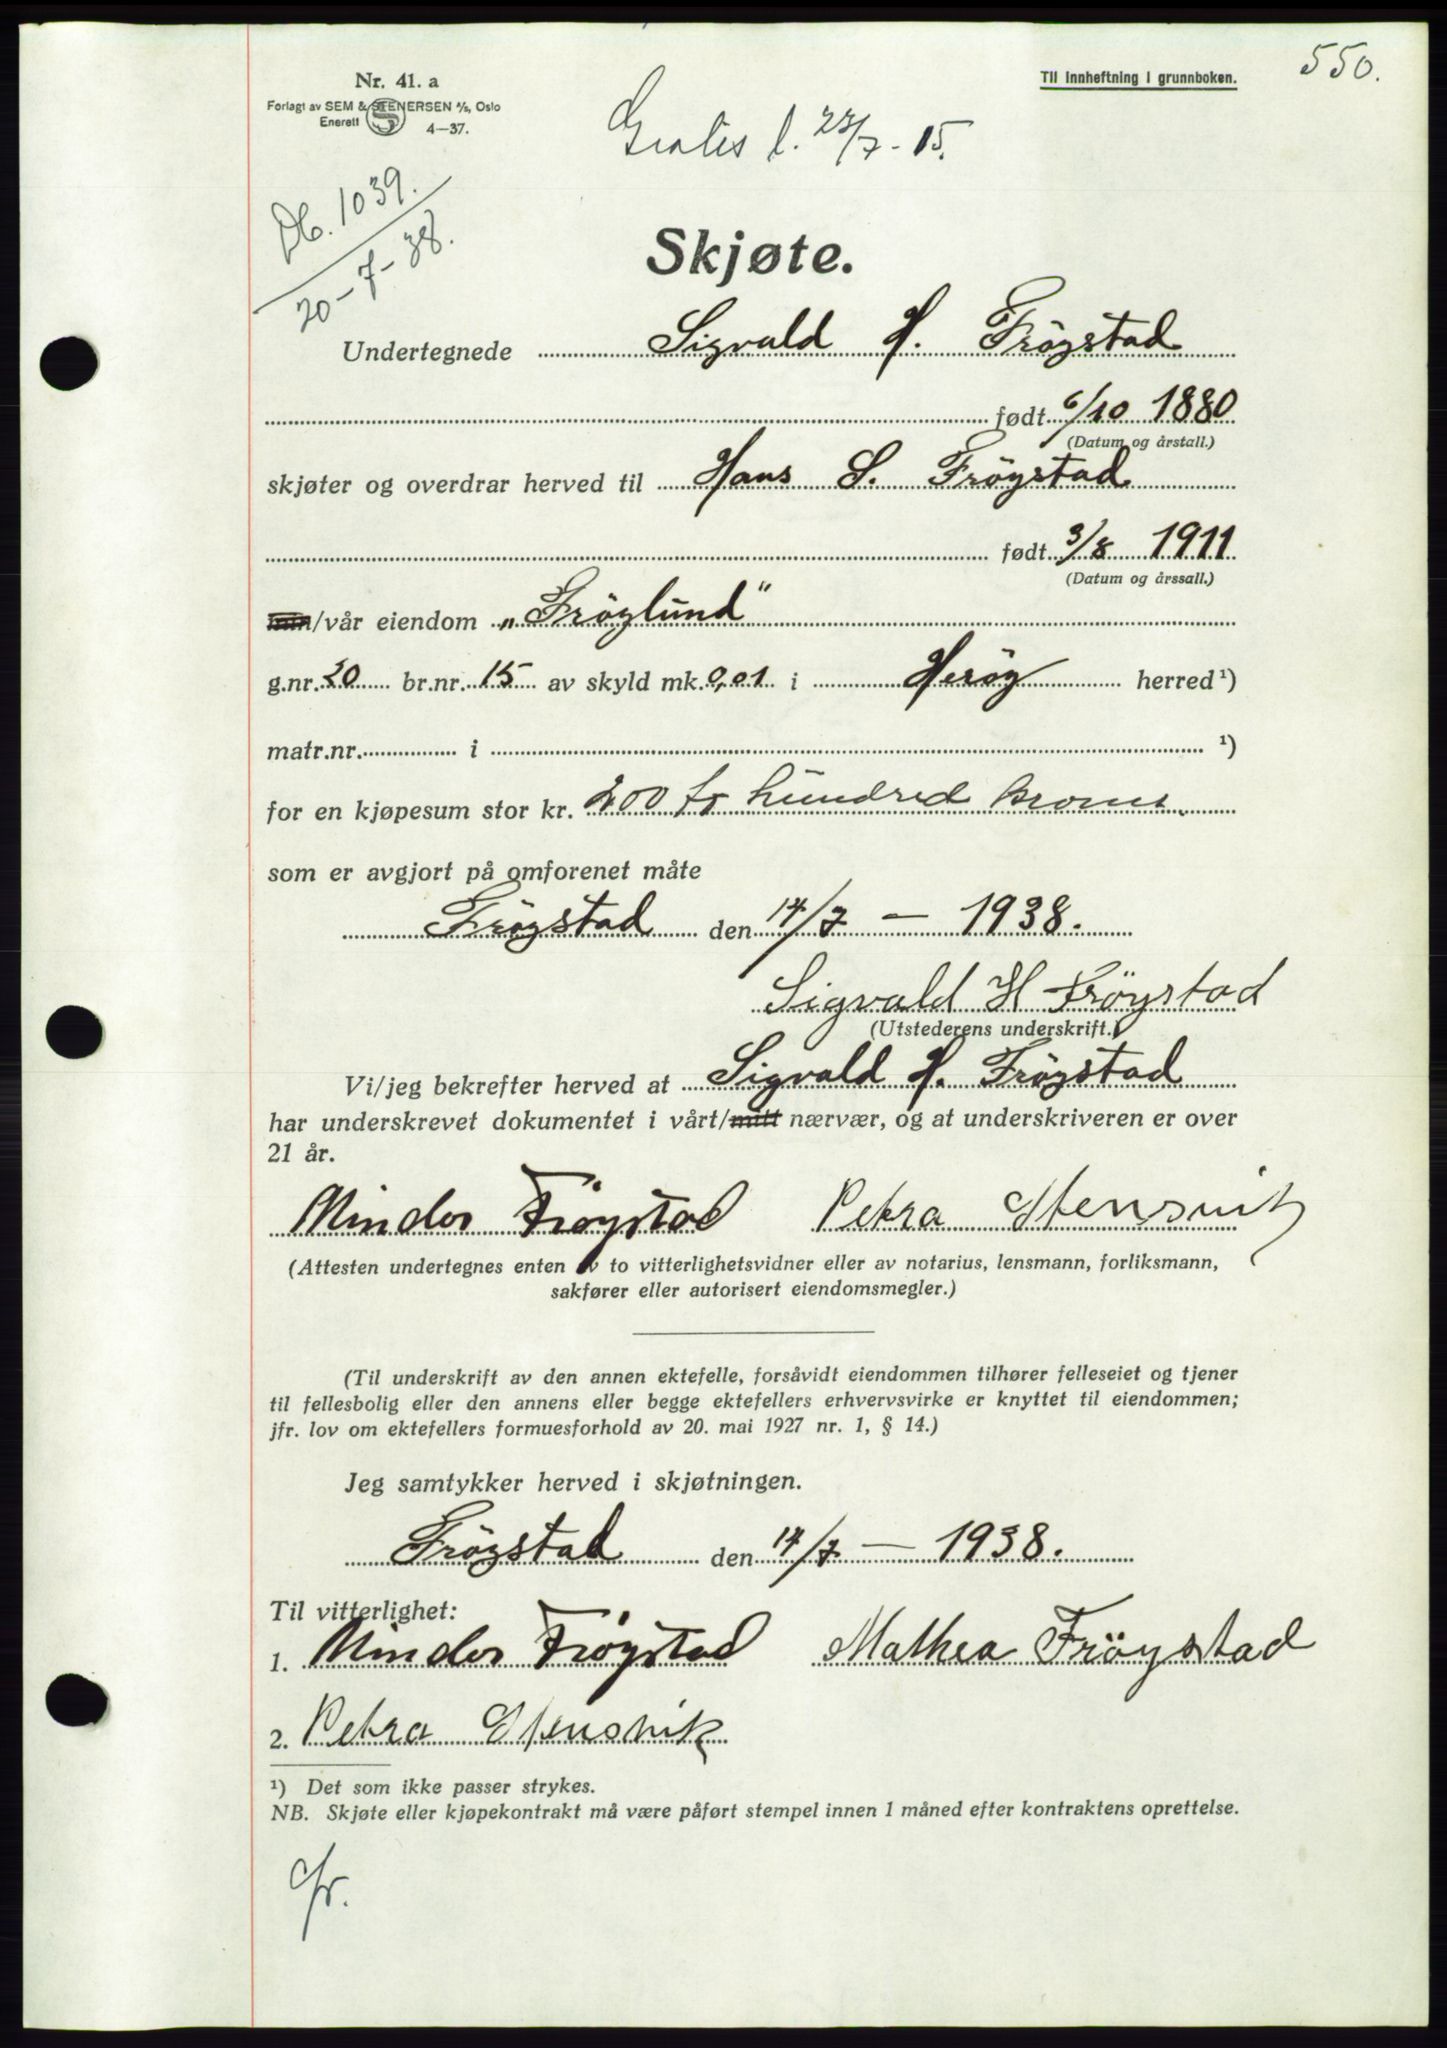 550.
Nr. 41. a
Til innheftning i grunnboken.
Forlagt av SEM & STENERSEN A/S, Oslo
Enerett 4—37.
Gratis l. 27/7 - 15.
Db. 1039.
20-7-38.
Skjøte.
Undertegnede Sigvald H. Fröystad
født 6/10 1880
(Datum og årstall.)
skjøter og overdrar herved til Hans S. Fröystad
født 3/8 1911
(Datum og årssall.)
min/vår eiendom „Fröylund"
g.nr. 20 br.nr. 15 av skyld mk. 0,01 i Heröy herred ¹)
matr.nr. i ¹)
for en kjøpesum stor kr. 200 to hundred kroner.
som er avgjort på omforenet måte
Fröystad den 14/7 — 1938.
Sigvald H Fröystad
(Utstederens underskrift.)
Vi/jeg bekrefter herved at Sigvald H. Fröystad
har underskrevet dokumentet i vårt/mitt nærvær, og at underskriveren er over
21 år.
Mindor Fröystad Petra Stensvik
(Attesten undertegnes enten av to vitterlighetsvidner eller av notarius, lensmann, forliksmann,
sakfører eller autorisert eiendomsmegler.)
(Til underskrift av den annen ektefelle, forsåvidt eiendommen tilhører felleseiet og tjener
til fellesbolig eller den annens eller begge ektefellers erhvervsvirke er knyttet til eiendommen;
jfr. lov om ektefellers formuesforhold av 20. mai 1927 nr. 1, § 14.)
Jeg samtykker herved i skjøtningen.
Fröystad den 14/7 — 1938.
Til vitterlighet:
1. Mindor Fröystad Mathea Fröystad
2. Petra Stensvik
¹) Det som ikke passer strykes.
NB. Skjøte eller kjøpekontrakt må være påført stempel innen 1 måned efter kontraktens oprettelse.